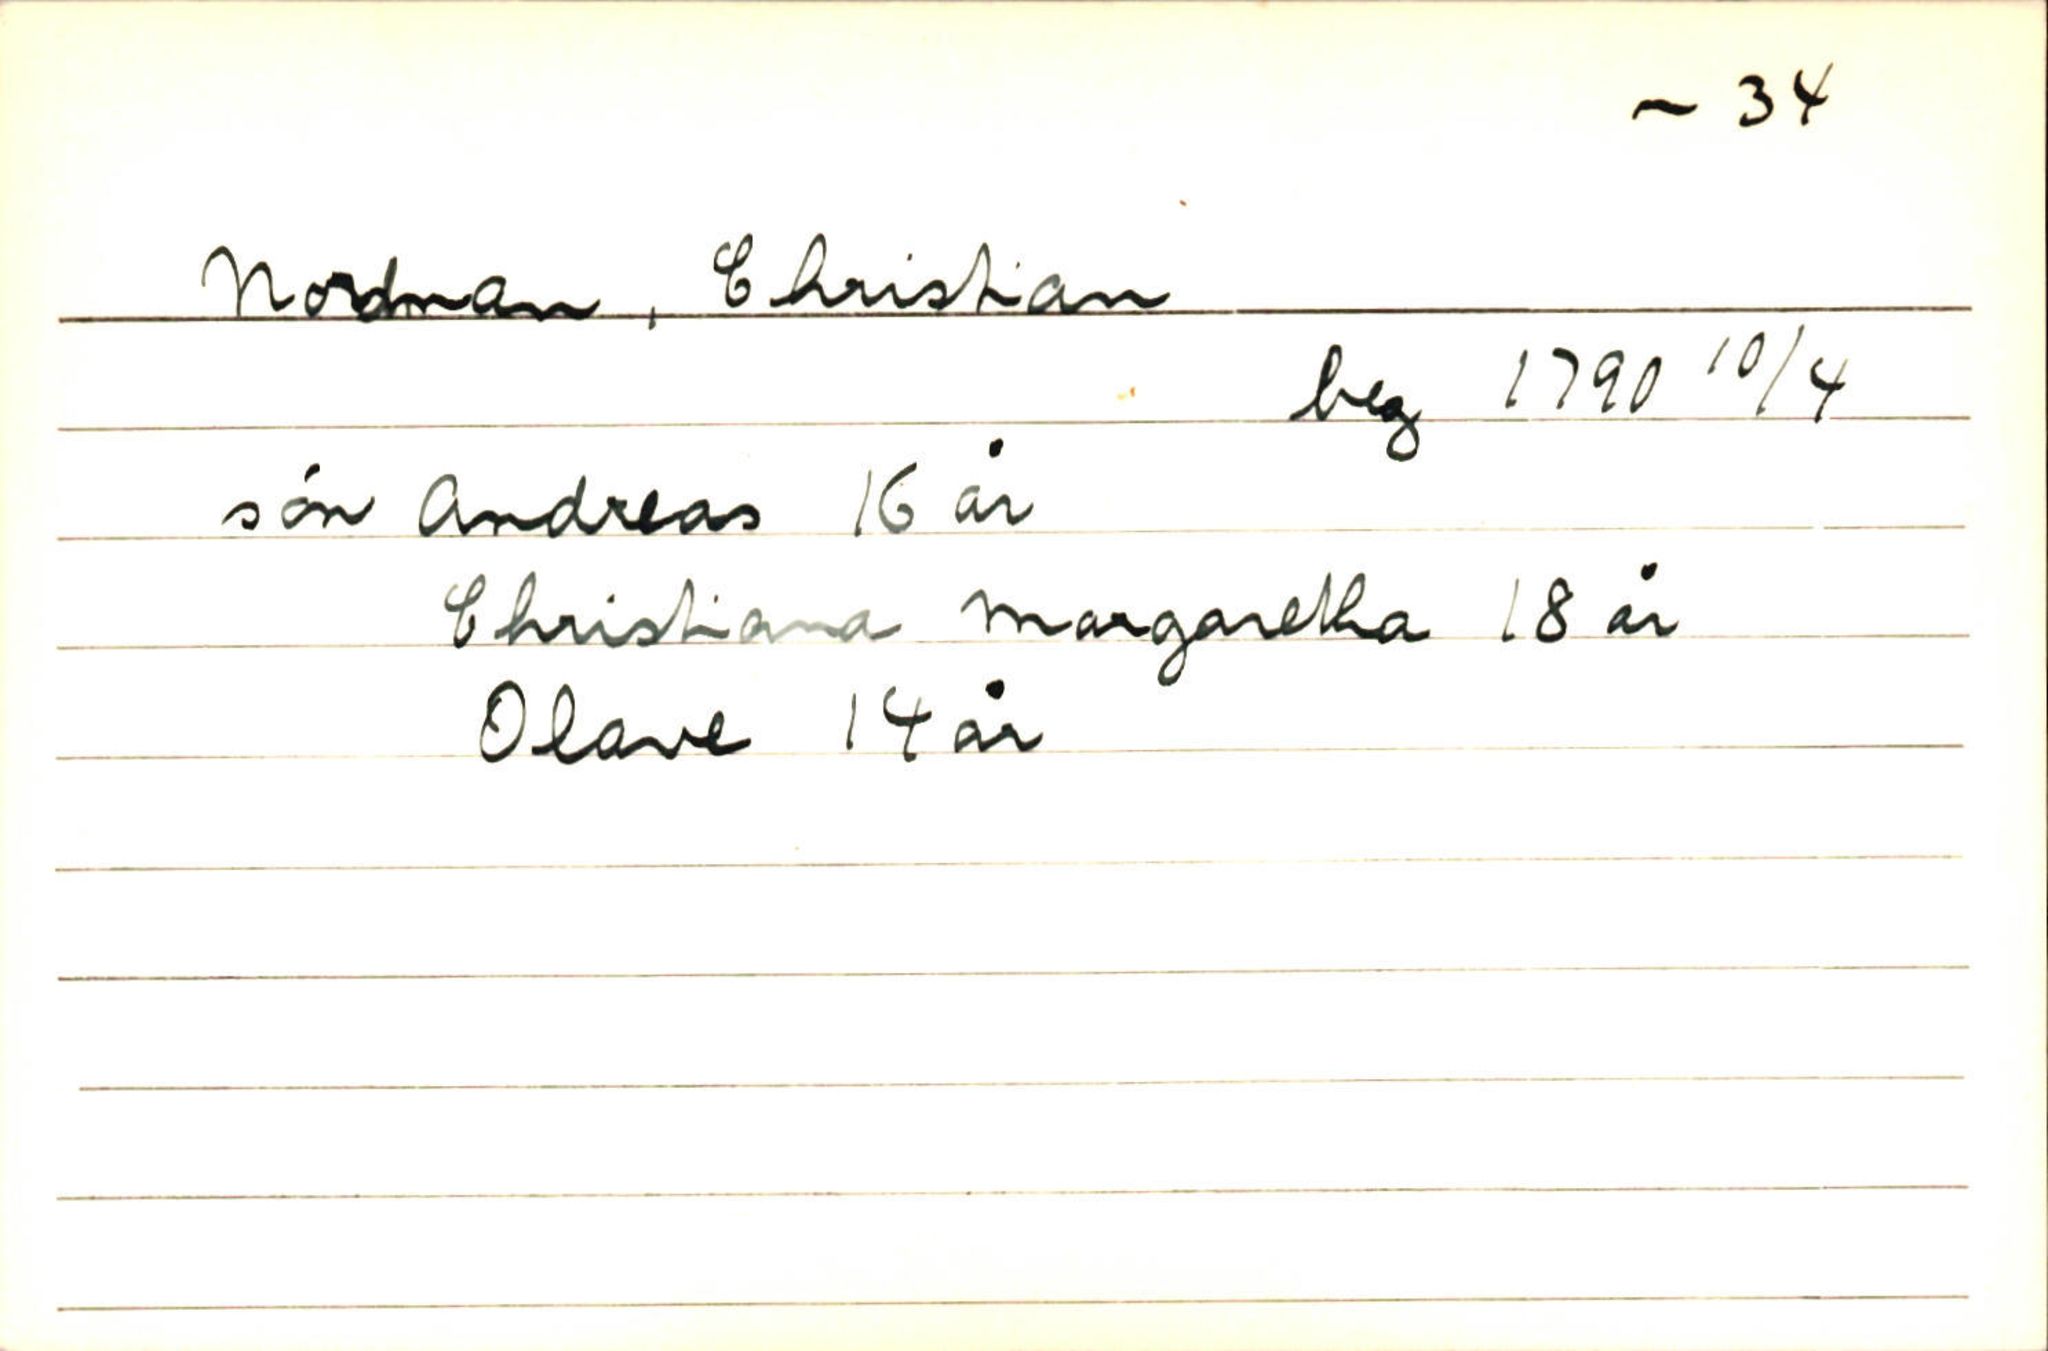 ~ 34
Nordman, Christian
beg 1790 10/4
són Andreas 16 år
Christiana Margaretha 18 år
Olave 14 år